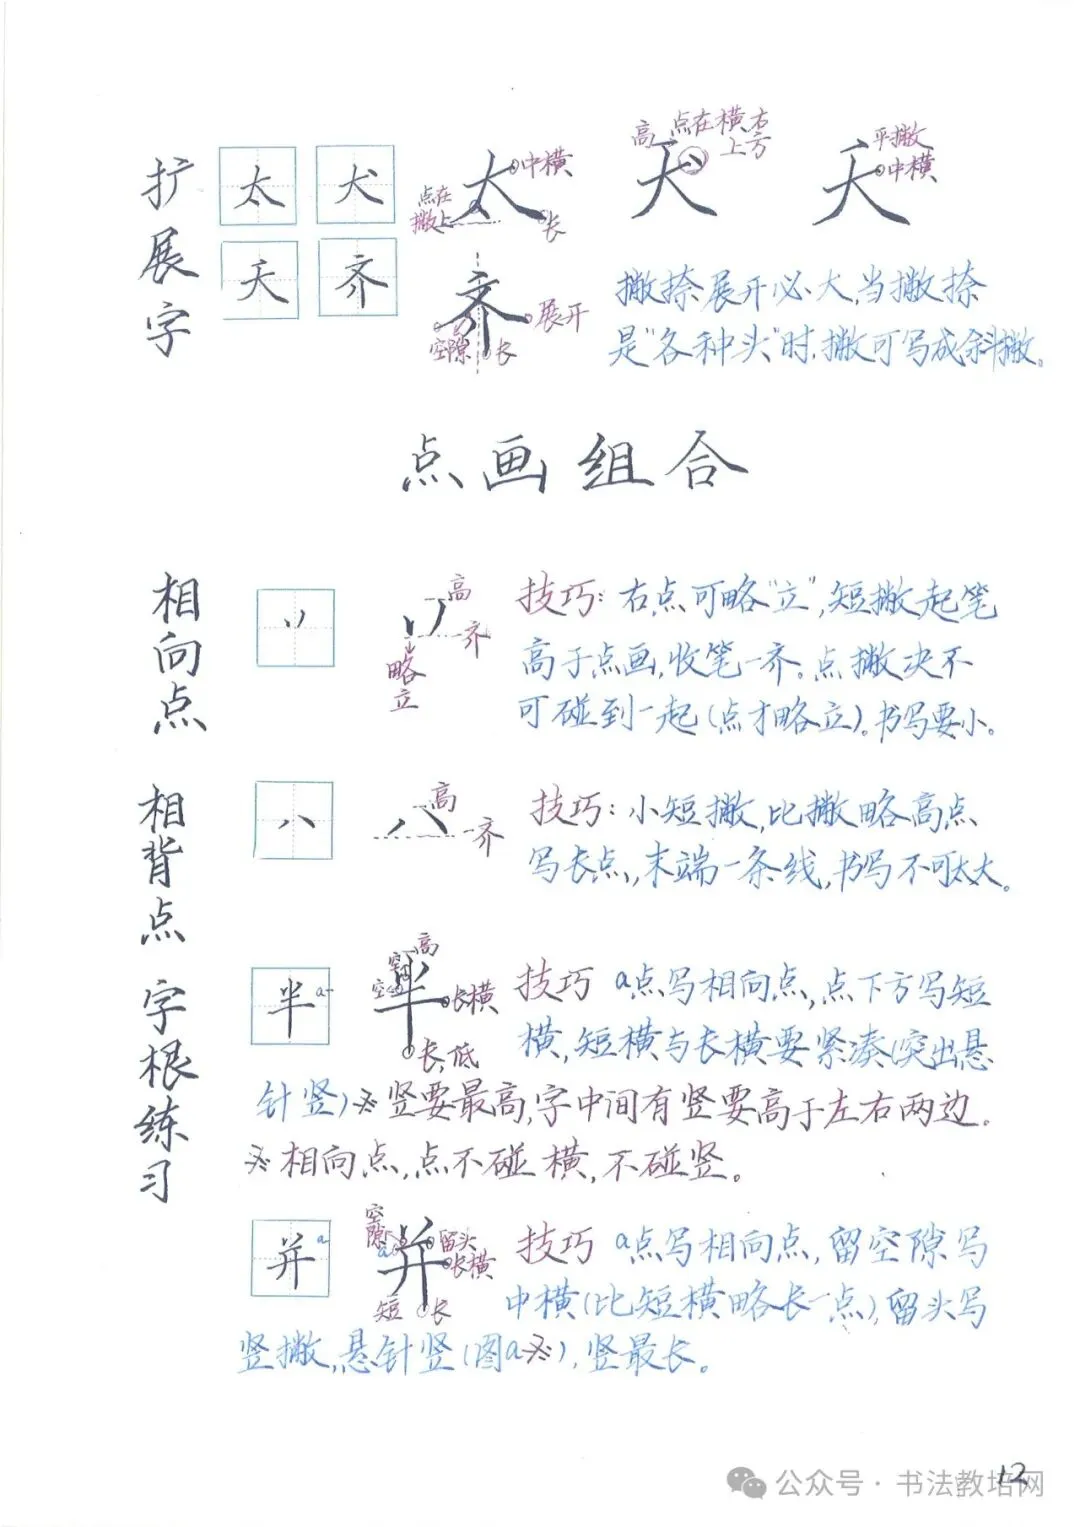 扩展字
太 犬
夭 齐
太 中横 点在撇上 长
犬 高 点在横右上方
夭 平撇 中横
齐 展开 空隙 长
撇捺展开必大,当撇捺
是"各种头"时,撇可写成斜撇。
点画组合
相向点
丷
高 齐 略立
技巧:右点可略"立",短撇起笔
高于点画,收笔一齐。点撇决不
可碰到一起(点才略立)。书写要小。
相背点
八
高 齐
技巧:小短撇,比撇略高点
写长点,末端一条线,书写不可太大。
字根练习
半 a
半 高 空 空 长横 长,低
技巧 a点写相向点,点下方写短
横,短横与长横要紧凑(突出悬
针竖)※竖要最高,字中间有竖要高于左右两边。
※相向点,点不碰横,不碰竖。
并 a
并 空隙 a 留头 长横 短 长
技巧 a点写相向点,留空隙写
中横(比短横略长一点),留头写
竖撇,悬针竖(图a※),竖最长。
12
公众号·书法教培网